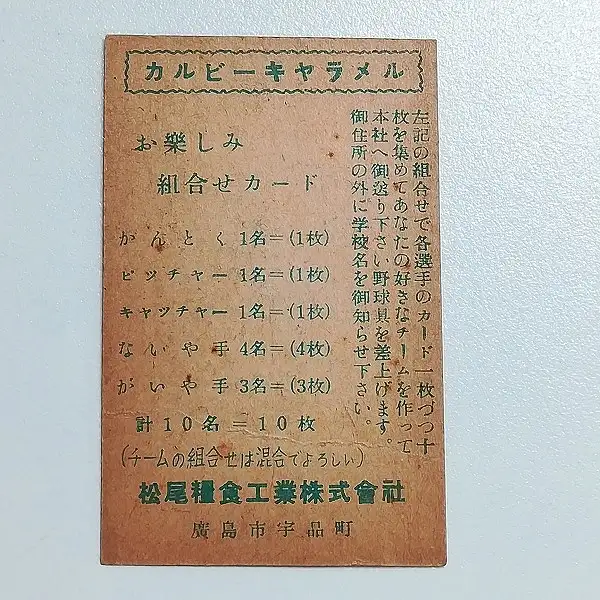 カルビーキャラメル
お樂しみ
組合せカード
かんとく 1名＝(1枚)
ピッチャー 1名＝(1枚)
キャッチャー 1名＝(1枚)
ないや手 4名＝(4枚)
がいや手 3名＝(3枚)
計10名＝10枚
(チームの組合せは混合でよろしい)
左記の組合せで各選手のカード一枚づつ十
枚を集めてあなたの好きなチームを作って
本社へ御送り下さい野球具を差上げます。
御住所の外に学校名を御知らせ下さい。
松尾糧食工業株式會社
廣島市宇品町